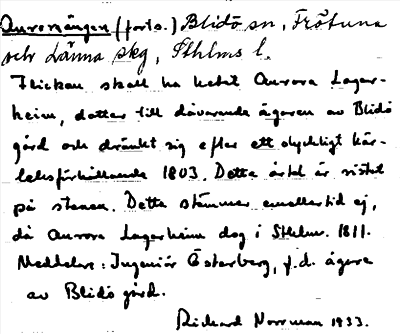 Aurorsängen (forts.) Blidö sn, Frötuna
och Länna skg, Sthlms l.
Flickan skall ha hetat Aurora Lager-
heim, dotter till dåvarande ägaren av Blidö
gård och dränkt sig efter ett olyckligt kär-
leksförhållande 1803. Detta årtal är ristat
på stenen. Detta stämmer emellertid ej,
då Aurora Lagerheim dog i Sthlm. 1811.
Meddelare: Ingeniör Österberg, f.d. ägare
av Blidö gård.
Richard Norrman 1933.